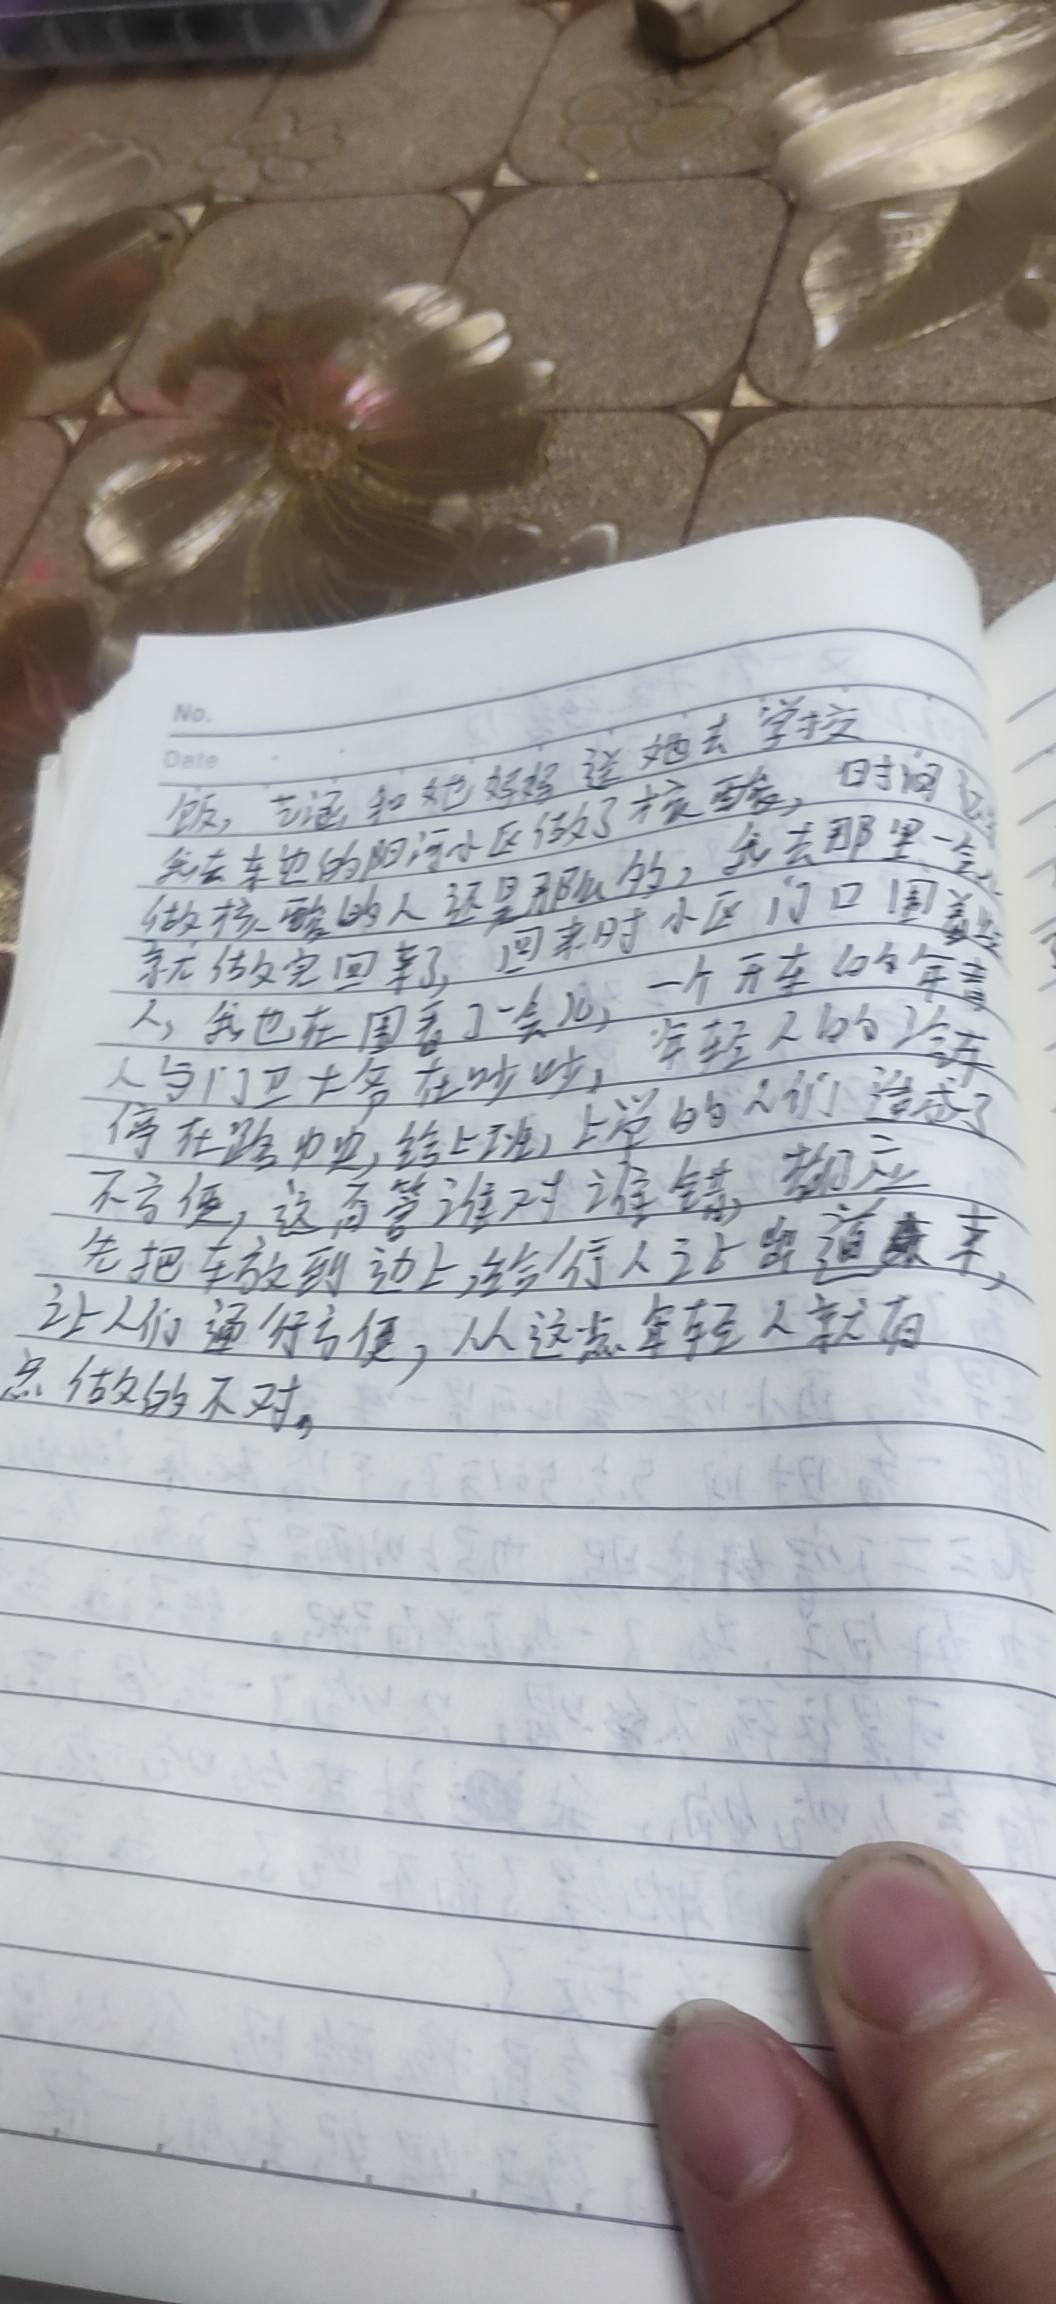 No.
Date
饭,艺涵和她妈妈送她去学校
我去东边的阳河小区做了核酸,时间
做核酸的人还是那么的,我去那里一会儿
就做完回来了,回来时小区门口围着些
人,我也在围看了一会儿,一个开车的年青
人与门卫大爷在吵吵,年轻人的车
停在路中央,给上班,上学的人们造成了
不方便,这不管谁对谁错,都应
先把车放到边上,给行人让出道来,
让人们通行方便,从这点年轻人就有
点做的不对。